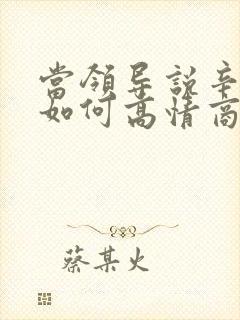 當领导說辛
如何高情商
蔡某火